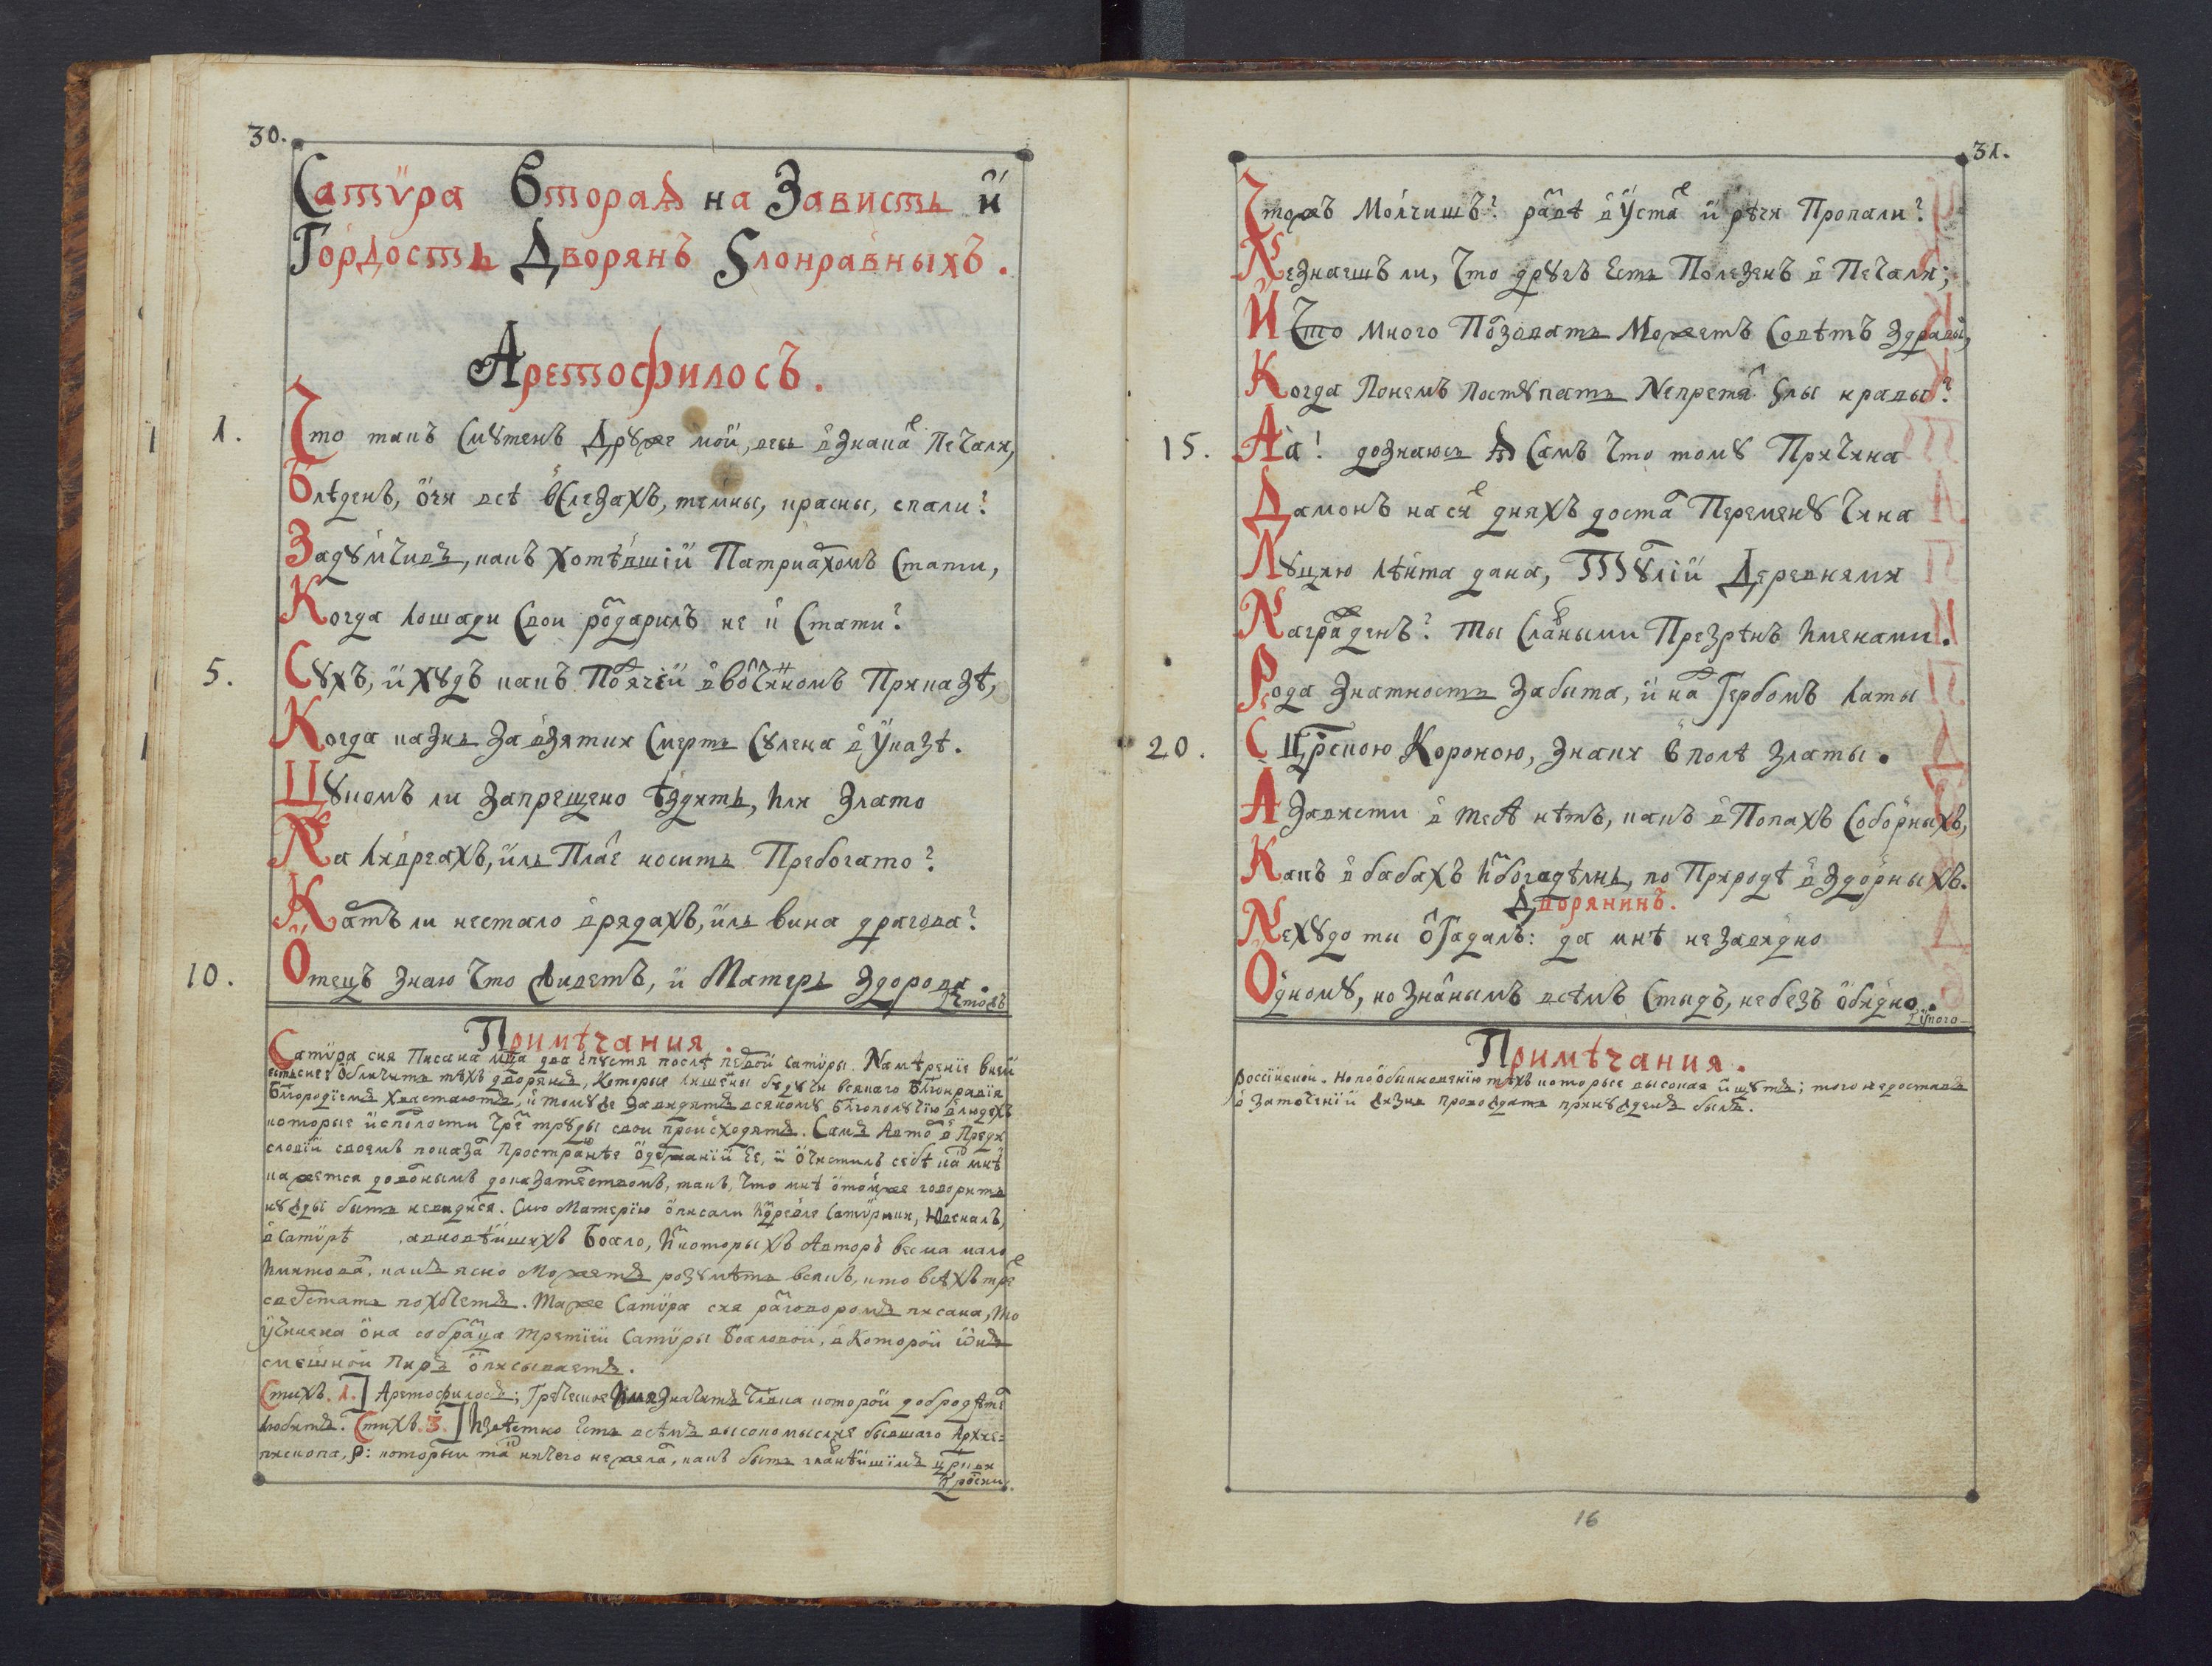 30.
Сатѵра Вторая на Зависть й
Гордость Дворянъ Ѕлонравныхъ.
Аретофилосъ.
1. Что такъ Смꙋтенъ Дрꙋже мой, весь в знака Печали,
Блѣденъ, очи всѣ в Слезахъ, темны, красны, спали?
Задꙋмчивъ, какъ Хотѣвшiй Патриахомъ Стати,
Когда лошади Свои родарилъ не й Стати?
5. Сꙋхъ, й хꙋдъ какъ Поячей в Вотчиномъ Приказѣ,
Когда казнь За взятки Смерть Сꙋлена в Указѣ.
Цꙋкомъ ли Запрещено ѣздить, или Злато
На ливреахъ, иль Плае носить Пребогато?
Катъ ли нестало в рядахъ, иль вина драгова?
10. Отецъ Знаю Что живетъ, й Матерь Здорова.
Чтожъ
Примѣчания.
Сатѵра сия Писана мца два спꙋстя послѣ первой Сатѵры. Намѣренiе в ней
есть сiе обличить тѣхъ дворянъ, Которые лишены бꙋдꙋчи всякаго Благонравiя
Благородiемъ Хвастаютъ, й томꙋ же Завидятъ всякомꙋ благополꙋчiю в людехъ
которые исполости чре трꙋды свои происходятъ. Самъ Авто в Преди
словiй своемъ показа Простране одежанiи Ее, й очистилъ себѣ как мнѣ
кажется довонымъ доказателствомъ, такъ, что мнѣ отомже говорить
нꙋжды быть невидися. Сию Материю описали преже Сатѵрики, Ювеналъ,
в Сатѵрѣ , а в новѣйшихъ Боало, которыхъ Авторъ весма мало
имитова. какъ ясно Можетъ розꙋмѣть всякъ, кто всѣхъ тре
сведстать похочетъ. Также Сатѵра сия раговоромъ писана, то
учинена она собраца третiей Сатѵры Боаловой, в Которой онъ
смешной Пиръ описываетъ.
Стихъ. 1.] Аретофилосъ; Греческое имя Значитъ Члвка которой добродѣте
любитъ. Стихъ. 3.] Известно Есть всѣмъ высокомыслие бывшаго Архие=
пископа, Р: которыи та ничего нежела, какъ быть главнѣйшимъ цркви
росски.
31.
Чтожъ Молчишъ? развѣ в уста й рѣчи Пропали?
Незнаешъ ли, Что дрꙋгъ Есть Полезенъ в Печали;
И Что много Позовать Можетъ Совѣтъ Здравы,
Когда Понемъ Постꙋпать Непретя Ѕлы нравы?
15. Аа! дознаюсь я Самъ Что томꙋ Причина
Дамонъ на си дняхъ доста Перемѣнꙋ Чина
Лꙋцию лѣнта дана, Тꙋлiй Деревнями
Награденъ? Ты Славными Презрѣнъ Именами.
Рода Знатность Забыта, й на Гербомъ латы
20. С Црскою Короною, Знаки в полѣ Златы.
А Зависти в тебѣ нѣтъ, какъ в Попахъ Соборныхъ,
Какъ в бабахъ и богадѣлнь, по Природѣ вздорныхъ.
Дворянинъ.
Нехꙋдо ты оГадалъ: да мнѣ не Завидно
Одномꙋ, но Знанымъ всѣмъ Стыдъ, небезъ обидно.
Примѣчания.
россiйской. Но по обыкновенiю тѣхъ которые высокая ищꙋтъ; того не достигъ
в Заточенiй жизнь провождать принꙋжденъ былъ.
16